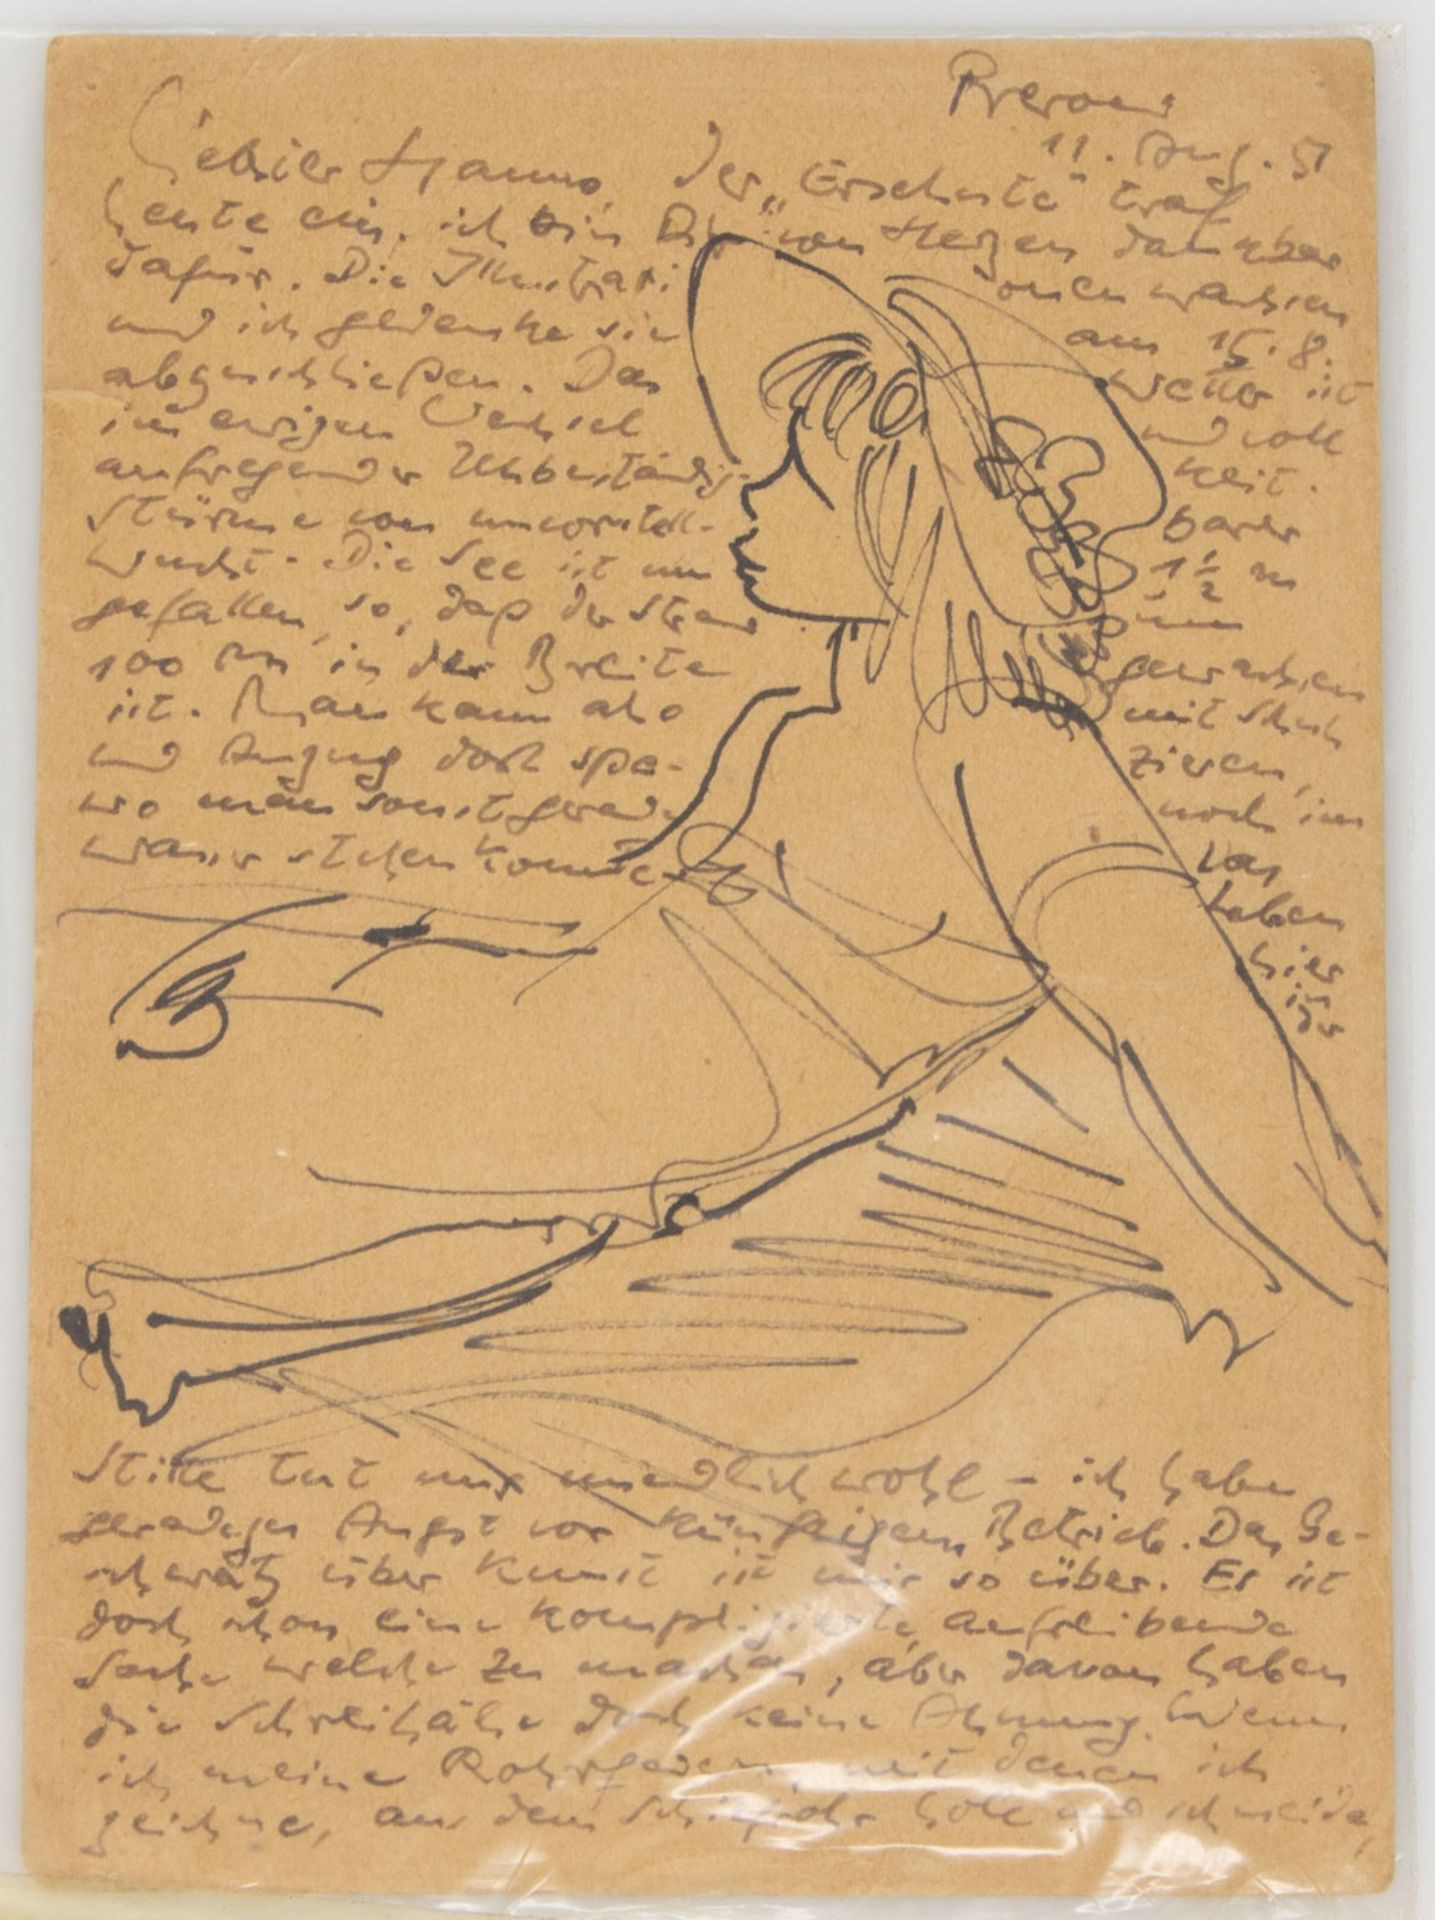 Prerow
11. Aug. 51
Liebster Hanno, der „Ersehnte“ traf
heute ein, ich bin Dir von Herzen dankbar
dafür. Die Illustrationen wachsen
und ich gedenke sie am 15. 8.
abzuschließen. Das Wetter ist
im ewigen Wechsel und voll
aufregender Unbeständigkeit.
Stürme von unvorstellbarer
Wucht. Die See ist um 1 1/2 m
gefallen, so, daß der Strand zum
100 m in der Breite gewachsen
ist. Man kann also mit Schuh
und Anzug dort spazieren,
wo man sonst gerade noch im
Wasser stehen konnte. Das
Leben
hier
in der
Stille tut mir unendlich wohl – ich habe
geradezu Angst vor künftigem Betrieb. Das Ge-
schwätz über Kunst ist mir so über. Es ist
doch schon eine komplizierte, aufreibende
Sache welche zu machen, aber davon haben
die Schreihälse doch keine Ahnung. Wenn
ich meine Rohrfedern, mit denen ich
zeichne, aus dem Schilfrohr hole und schneide,